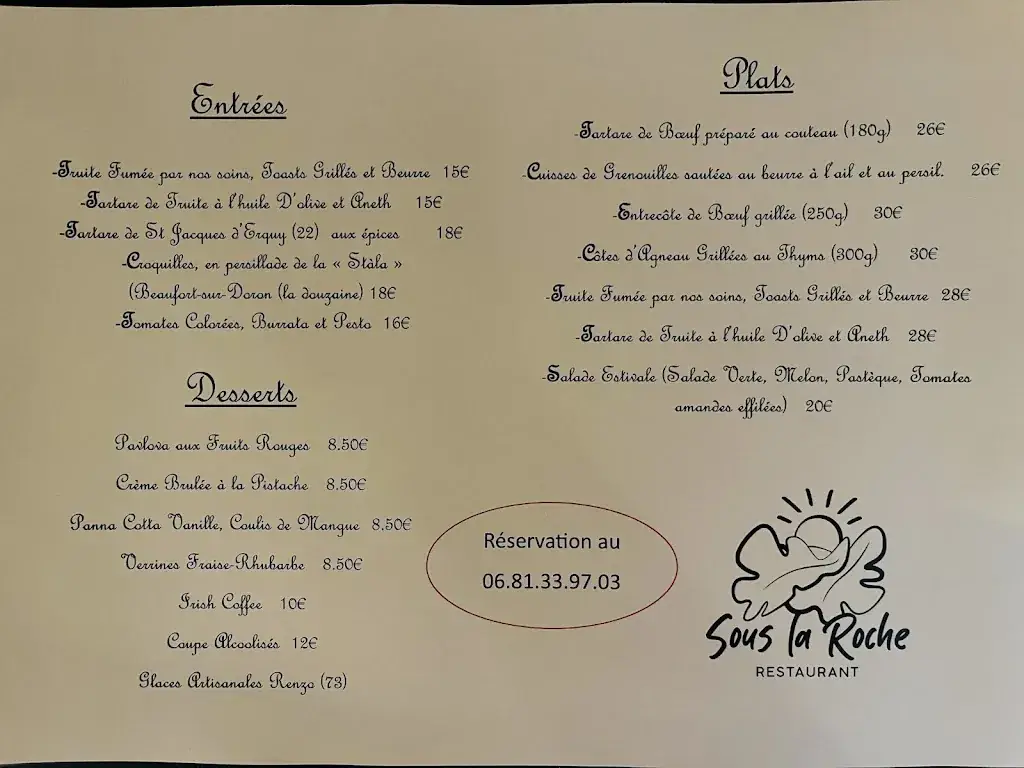 Entrées
-Truite Fumée par nos soins, Toasts Grillés et Beurre 15€
-Tartare de Truite à l'huile D'olive et Aneth 15€
-Tartare de St Jacques d'Erquy (22) aux épices 18€
-Croquilles, en persillade de la « Stàla »
(Beaufort-sur-Doron (la douzaine) 18€
-Tomates Colorées, Burrata et Pesto 16€
Desserts
Pavlova aux Fruits Rouges 8.50€
Crème Brulée à la Pistache 8.50€
Panna Cotta Vanille, Coulis de Mangue 8.50€
Verrines Fraise-Rhubarbe 8.50€
Irish Coffee 10€
Coupe Alcoolisés 12€
Glaces Artisanales Renzo (73)
Plats
-Tartare de Bœuf préparé au couteau (180g) 26€
-Cuisses de Grenouilles sautées au beurre à l'ail et au persil. 26€
-Entrecôte de Bœuf grillée (250g) 30€
-Côtes d'Agneau Grillées au Thyms (300g) 30€
-Truite Fumée par nos soins, Toasts Grillés et Beurre 28€
-Tartare de Truite à l'huile D'olive et Aneth 28€
-Salade Estivale (Salade Verte, Melon, Pastèque, Tomates
amandes effilées) 20€
Réservation au
06.81.33.97.03
Sous la Roche
RESTAURANT